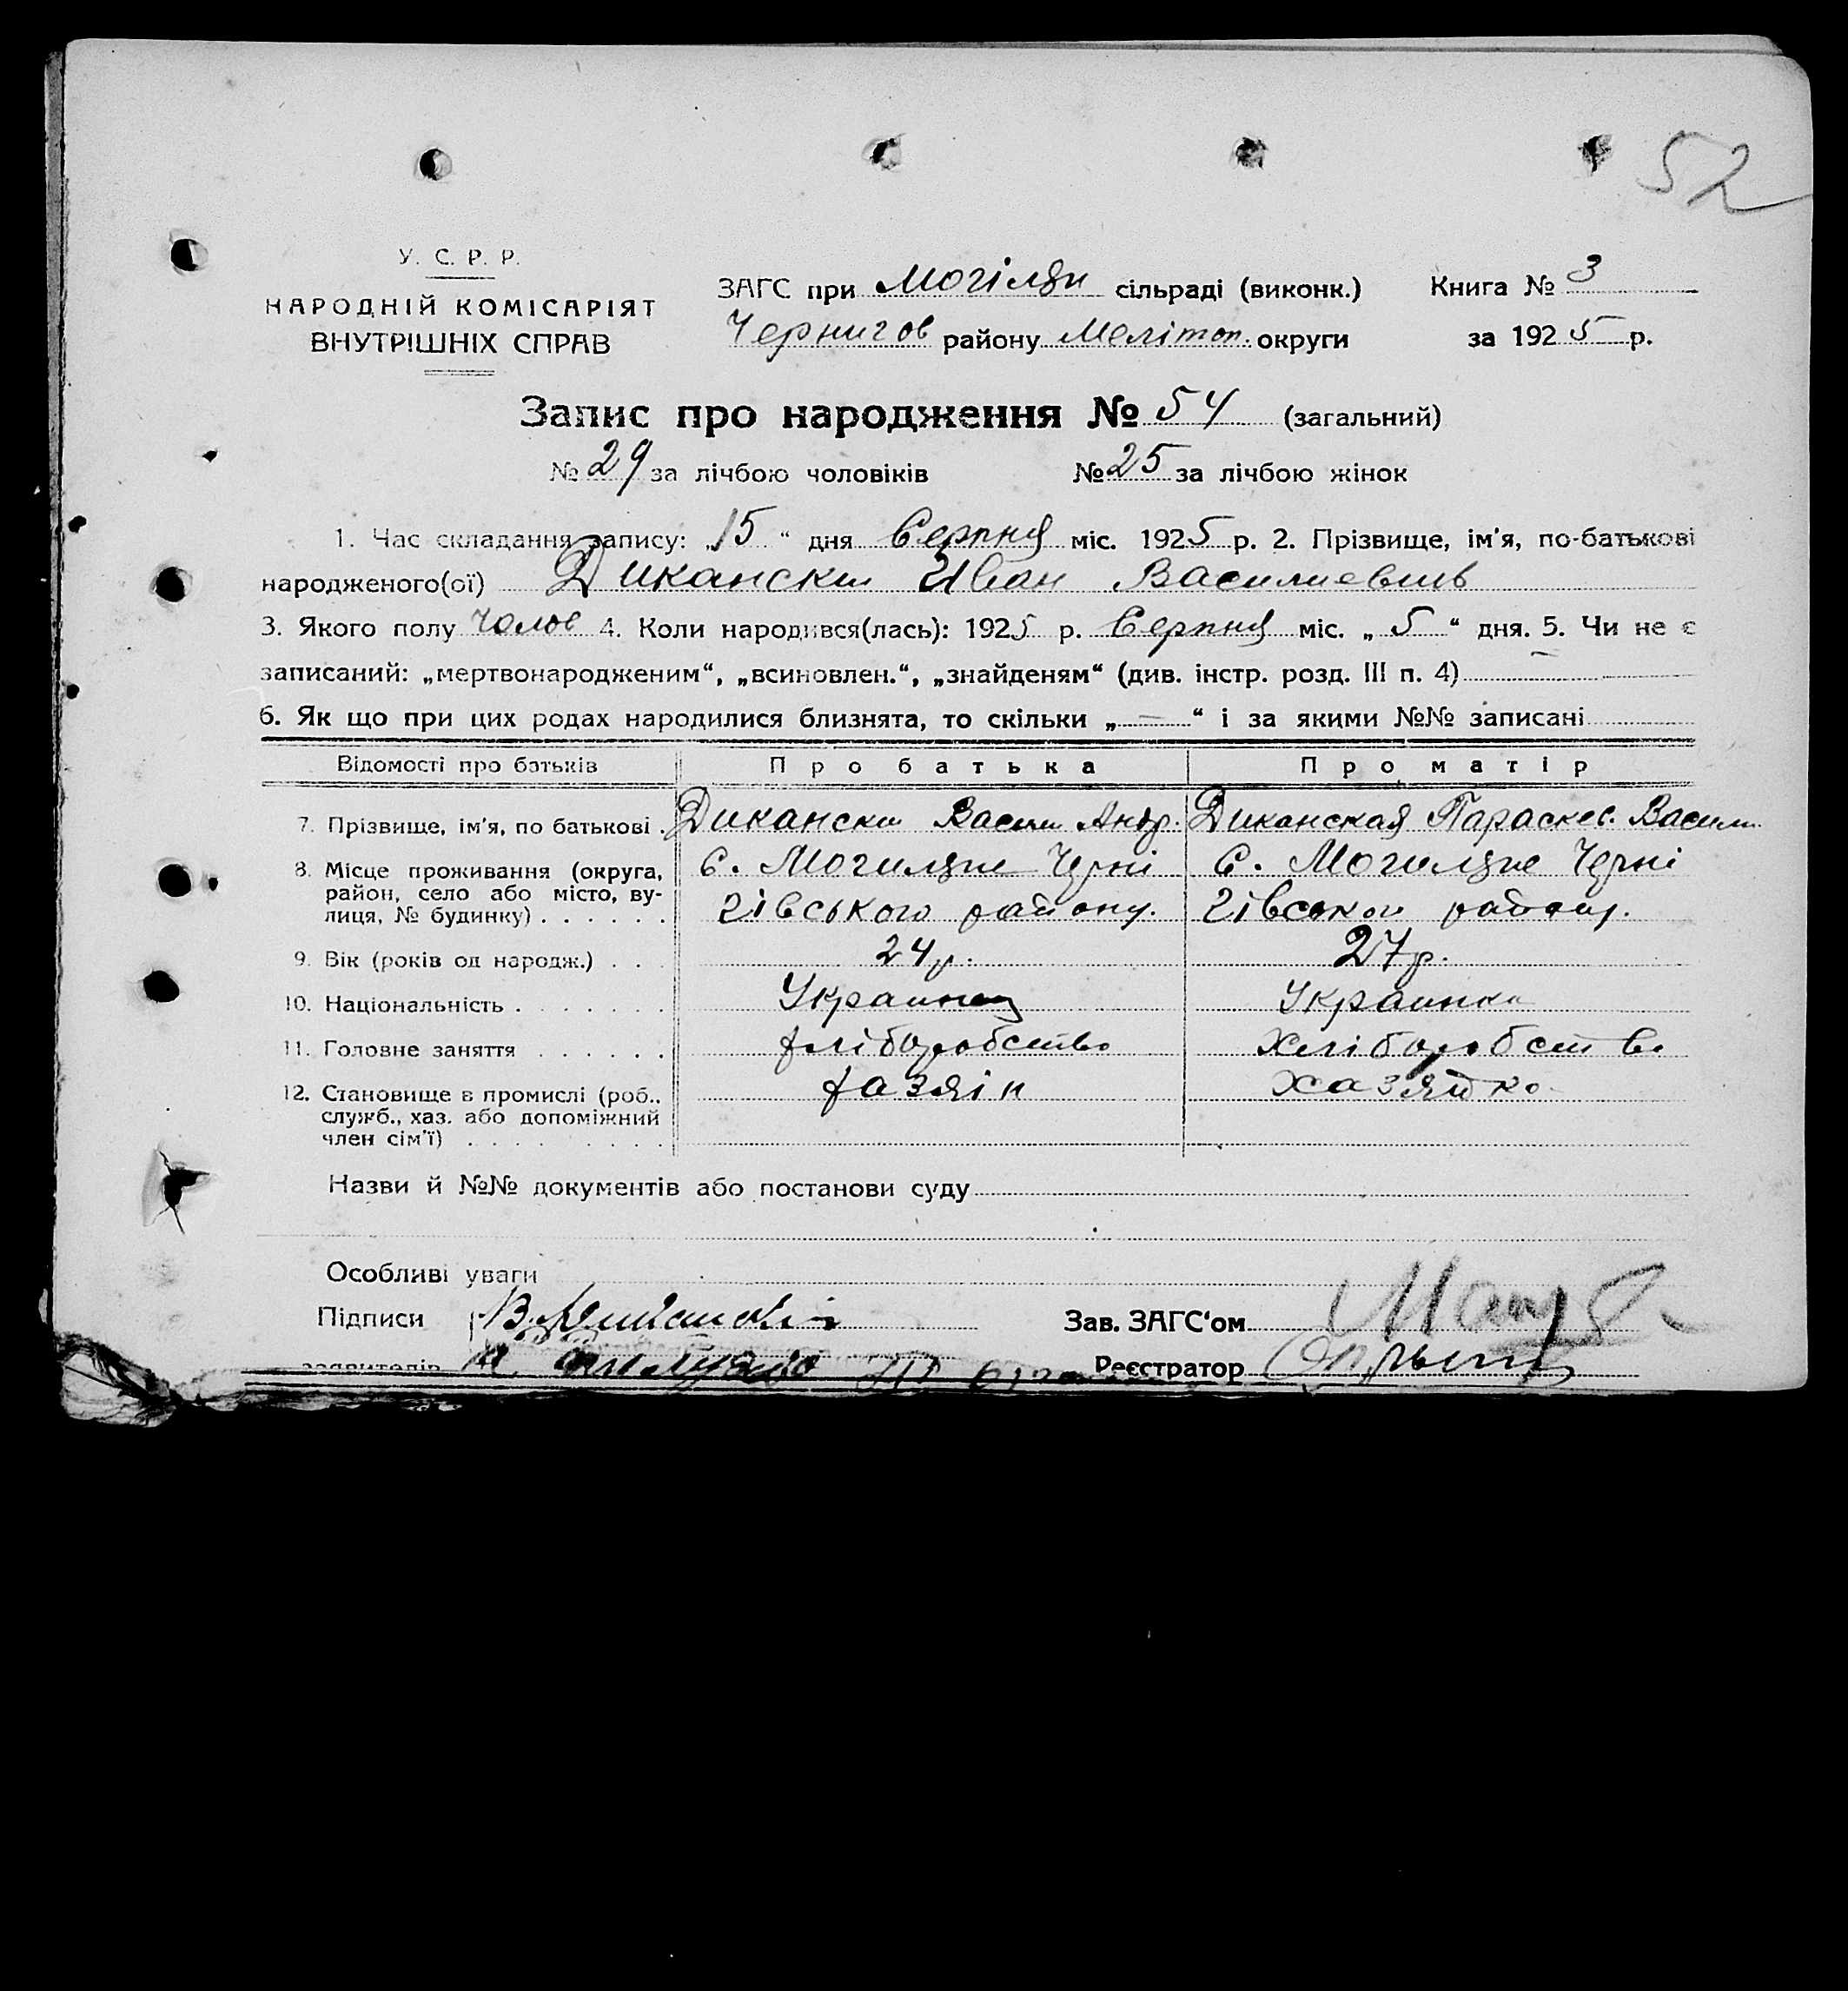 52
У. С. Р. Р.
НАРОДНІЙ КОМІСАРІЯТ
ВНУТРІШНІХ СПРАВ
ЗАГС при Могіляни сільраді (виконк.) Книга № 3
Чернигов району Мелітоп. округи за 1925 р.
Запис про народження № 54 (загальний)
№ 29 за лічбою чоловіків № 25 за лічбою жінок
1. Час складання запису: „15“ дня Серпня міс. 1925 р. 2. Прізвище, ім'я, по-батькові
народженого(ої) Дикански Иван Василиевич
3. Якого полу Чолов 4. Коли народився(лась): 1925 р. Серпня міс. „5“ дня. 5. Чи не є
записаний: „мертвонародженим“, „всиновлен.“, „знайденям“ (див. інстр. розд. III п. 4) —
6. Як що при цих родах народилися близнята, то скільки „—“ і за якими №№ записані
Відомості про батьків Про батька Про матір
7. Прізвище, ім'я, по батькові . Дикански Васили Андр. Диканская Параскев. Васили
8. Місце проживання (округа, район, село або місто, вулиця, № будинку) . . . . . . С. Могиляне Черні гівського району. С. Могиляне Черні гівського району.
9. Вік (років од народж.) . . . 24 р. 27 р.
10. Національність . . . . . . . Украинец Украинка
11. Головне заняття . . . . . . Хліборобство Хліборобство
12. Становище в промислі (роб., служб., хаз. або допоміжний член сім'ї) . . . . . . . . . Хазяін Хазяйка
Назви й №№ документів або постанови суду
Особливі уваги
Підписи Зав. ЗАГС'ом
заявителів Реєстратор